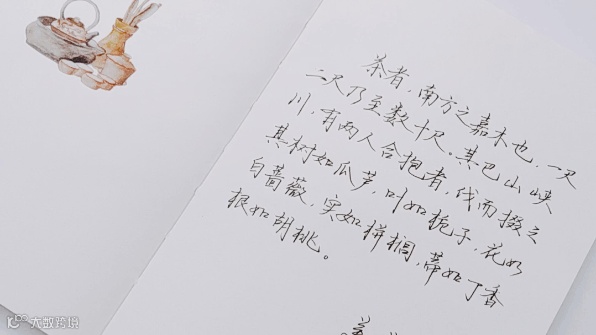 茶者，南方之嘉木也，一尺
二尺乃至数十尺。其巴山峡
川，有两人合抱者，伐而掇之
其树如瓜芦，叶如栀子，花如
白蔷薇，实如栟榈，蒂如丁香
根如胡桃。
大数跨境